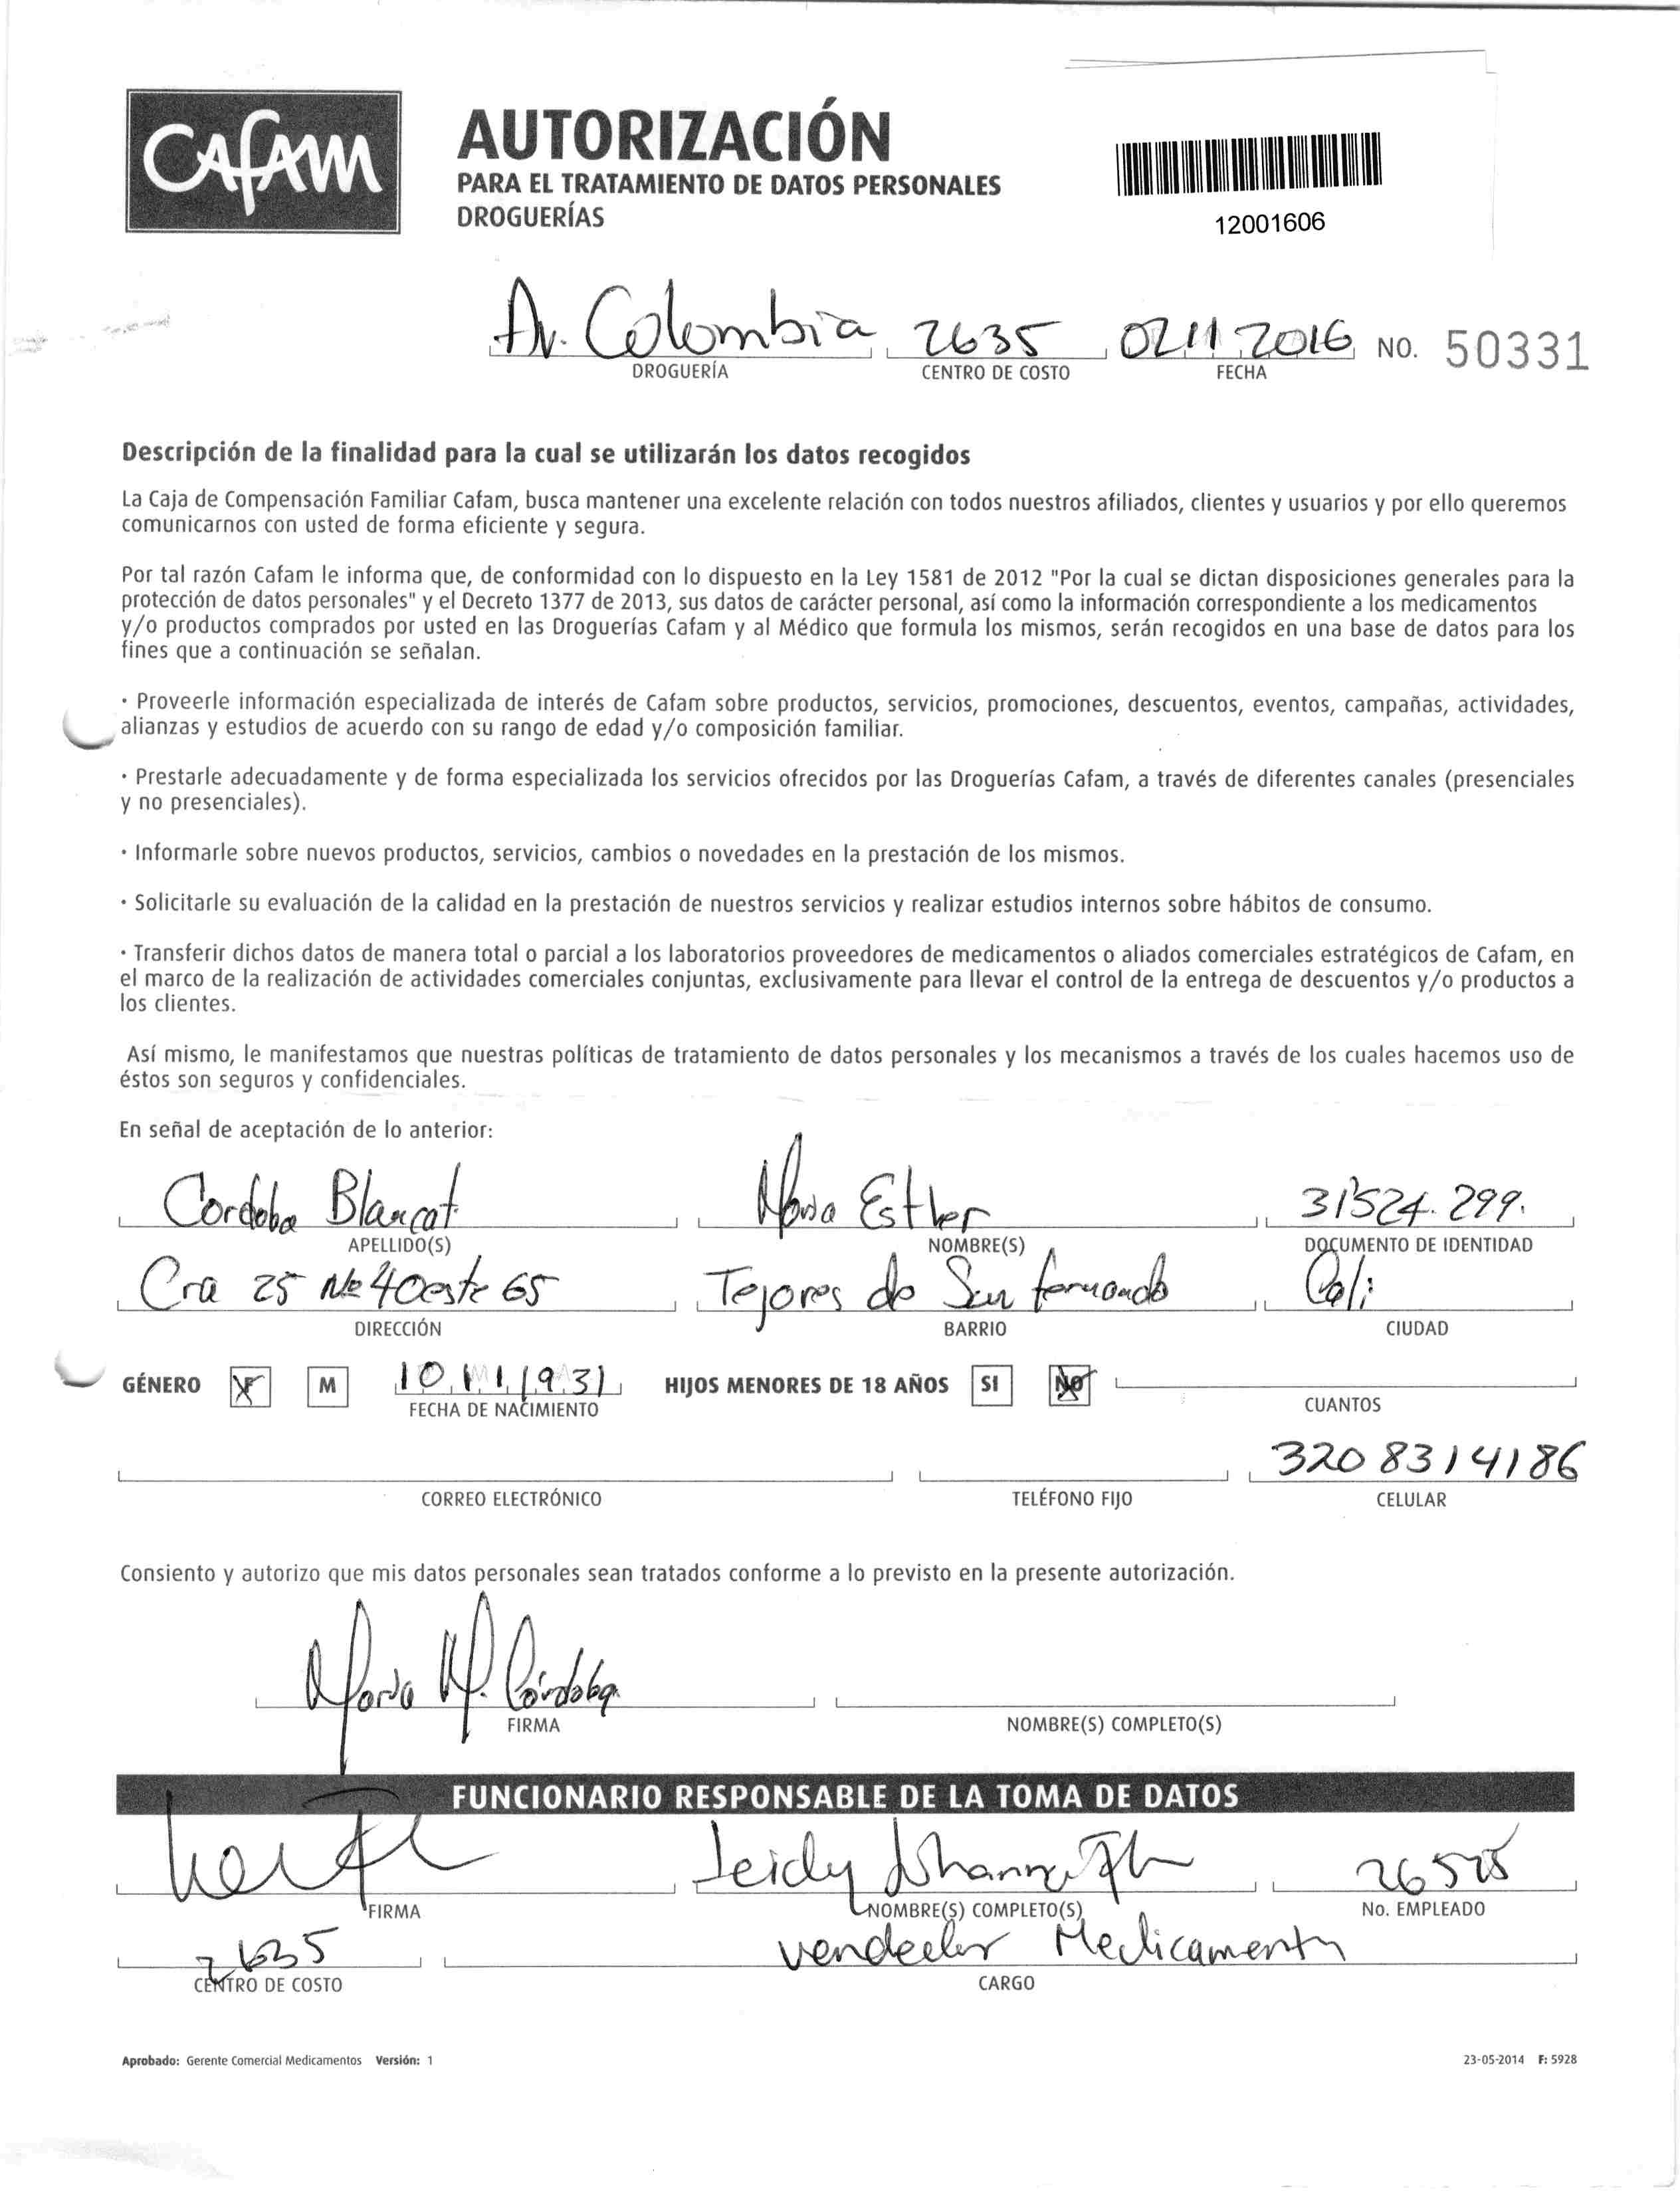 CAFAM
AUTORIZACIÓN
PARA EL TRATAMIENTO DE DATOS PERSONALES
DROGUERÍAS
12001606
Av. Colombia 2635 02 11 2016 NO. 50331
DROGUERÍA CENTRO DE COSTO FECHA
Descripción de la finalidad para la cual se utilizarán los datos recogidos
La Caja de Compensación Familiar Cafam, busca mantener una excelente relación con todos nuestros afiliados, clientes y usuarios y por ello queremos
comunicarnos con usted de forma eficiente y segura.
Por tal razón Cafam le informa que, de conformidad con lo dispuesto en la Ley 1581 de 2012 "Por la cual se dictan disposiciones generales para la
protección de datos personales" y el Decreto 1377 de 2013, sus datos de carácter personal, así como la información correspondiente a los medicamentos
y/o productos comprados por usted en las Droguerías Cafam y al Médico que formula los mismos, serán recogidos en una base de datos para los
fines que a continuación se señalan.
· Proveerle información especializada de interés de Cafam sobre productos, servicios, promociones, descuentos, eventos, campañas, actividades,
alianzas y estudios de acuerdo con su rango de edad y/o composición familiar.
· Prestarle adecuadamente y de forma especializada los servicios ofrecidos por las Droguerías Cafam, a través de diferentes canales (presenciales
y no presenciales).
· Informarle sobre nuevos productos, servicios, cambios o novedades en la prestación de los mismos.
· Solicitarle su evaluación de la calidad en la prestación de nuestros servicios y realizar estudios internos sobre hábitos de consumo.
· Transferir dichos datos de manera total o parcial a los laboratorios proveedores de medicamentos o aliados comerciales estratégicos de Cafam, en
el marco de la realización de actividades comerciales conjuntas, exclusivamente para llevar el control de la entrega de descuentos y/o productos a
los clientes.
Así mismo, le manifestamos que nuestras políticas de tratamiento de datos personales y los mecanismos a través de los cuales hacemos uso de
éstos son seguros y confidenciales.
En señal de aceptación de lo anterior:
Cordoba Maria Esther 31'524.299.
APELLIDO(S) NOMBRE(S) DOCUMENTO DE IDENTIDAD
Cra 25 No 4Oeste 65 Tejares de San fernando Cali
DIRECCIÓN BARRIO CIUDAD
GÉNERO F M 10 11 1931 HIJOS MENORES DE 18 AÑOS SI NO
FECHA DE NACIMIENTO CUANTOS
320 8314186
CORREO ELECTRÓNICO TELÉFONO FIJO CELULAR
Consiento y autorizo que mis datos personales sean tratados conforme a lo previsto en la presente autorización.
Maria Córdoba
FIRMA NOMBRE(S) COMPLETO(S)
FUNCIONARIO RESPONSABLE DE LA TOMA DE DATOS
Leidy
FIRMA NOMBRE(S) COMPLETO(S) No. EMPLEADO
2635 vendedor Medicamentos
CENTRO DE COSTO CARGO
Aprobado: Gerente Comercial Medicamentos Versión: 1 23-05-2014 F: 5928